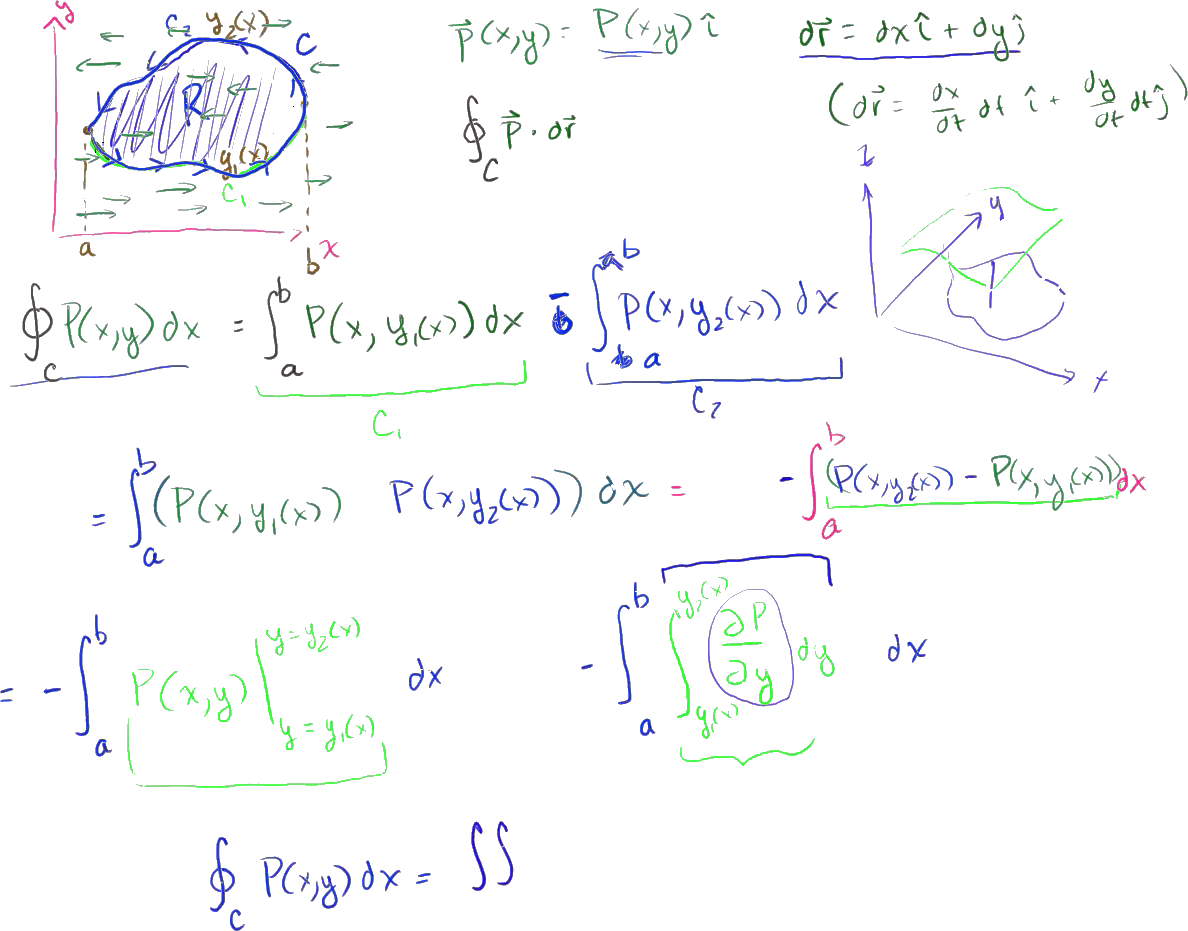 y C₂ y₂(x) C
R
y₁(x)
C₁
a b x
P⃗(x,y) = P(x,y) î
dr⃗ = dx î + dy ĵ
∮_C P⃗ · dr⃗
(dr⃗ = dx/dt dt î + dy/dt dt ĵ)
z y x
∮_C P(x,y) dx = ∫_a^b P(x, y₁(x)) dx - ∫_a^b P(x, y₂(x)) dx
C₁ C₂
= ∫_a^b (P(x, y₁(x)) P(x, y₂(x))) dx = - ∫_a^b (P(x, y₂(x)) - P(x, y₁(x))) dx
= - ∫_a^b P(x,y) |_{y = y₁(x)}^{y = y₂(x)} dx - ∫_a^b ∫_{y₁(x)}^{y₂(x)} ∂P/∂y dy dx
∮_C P(x,y) dx = ∫∫